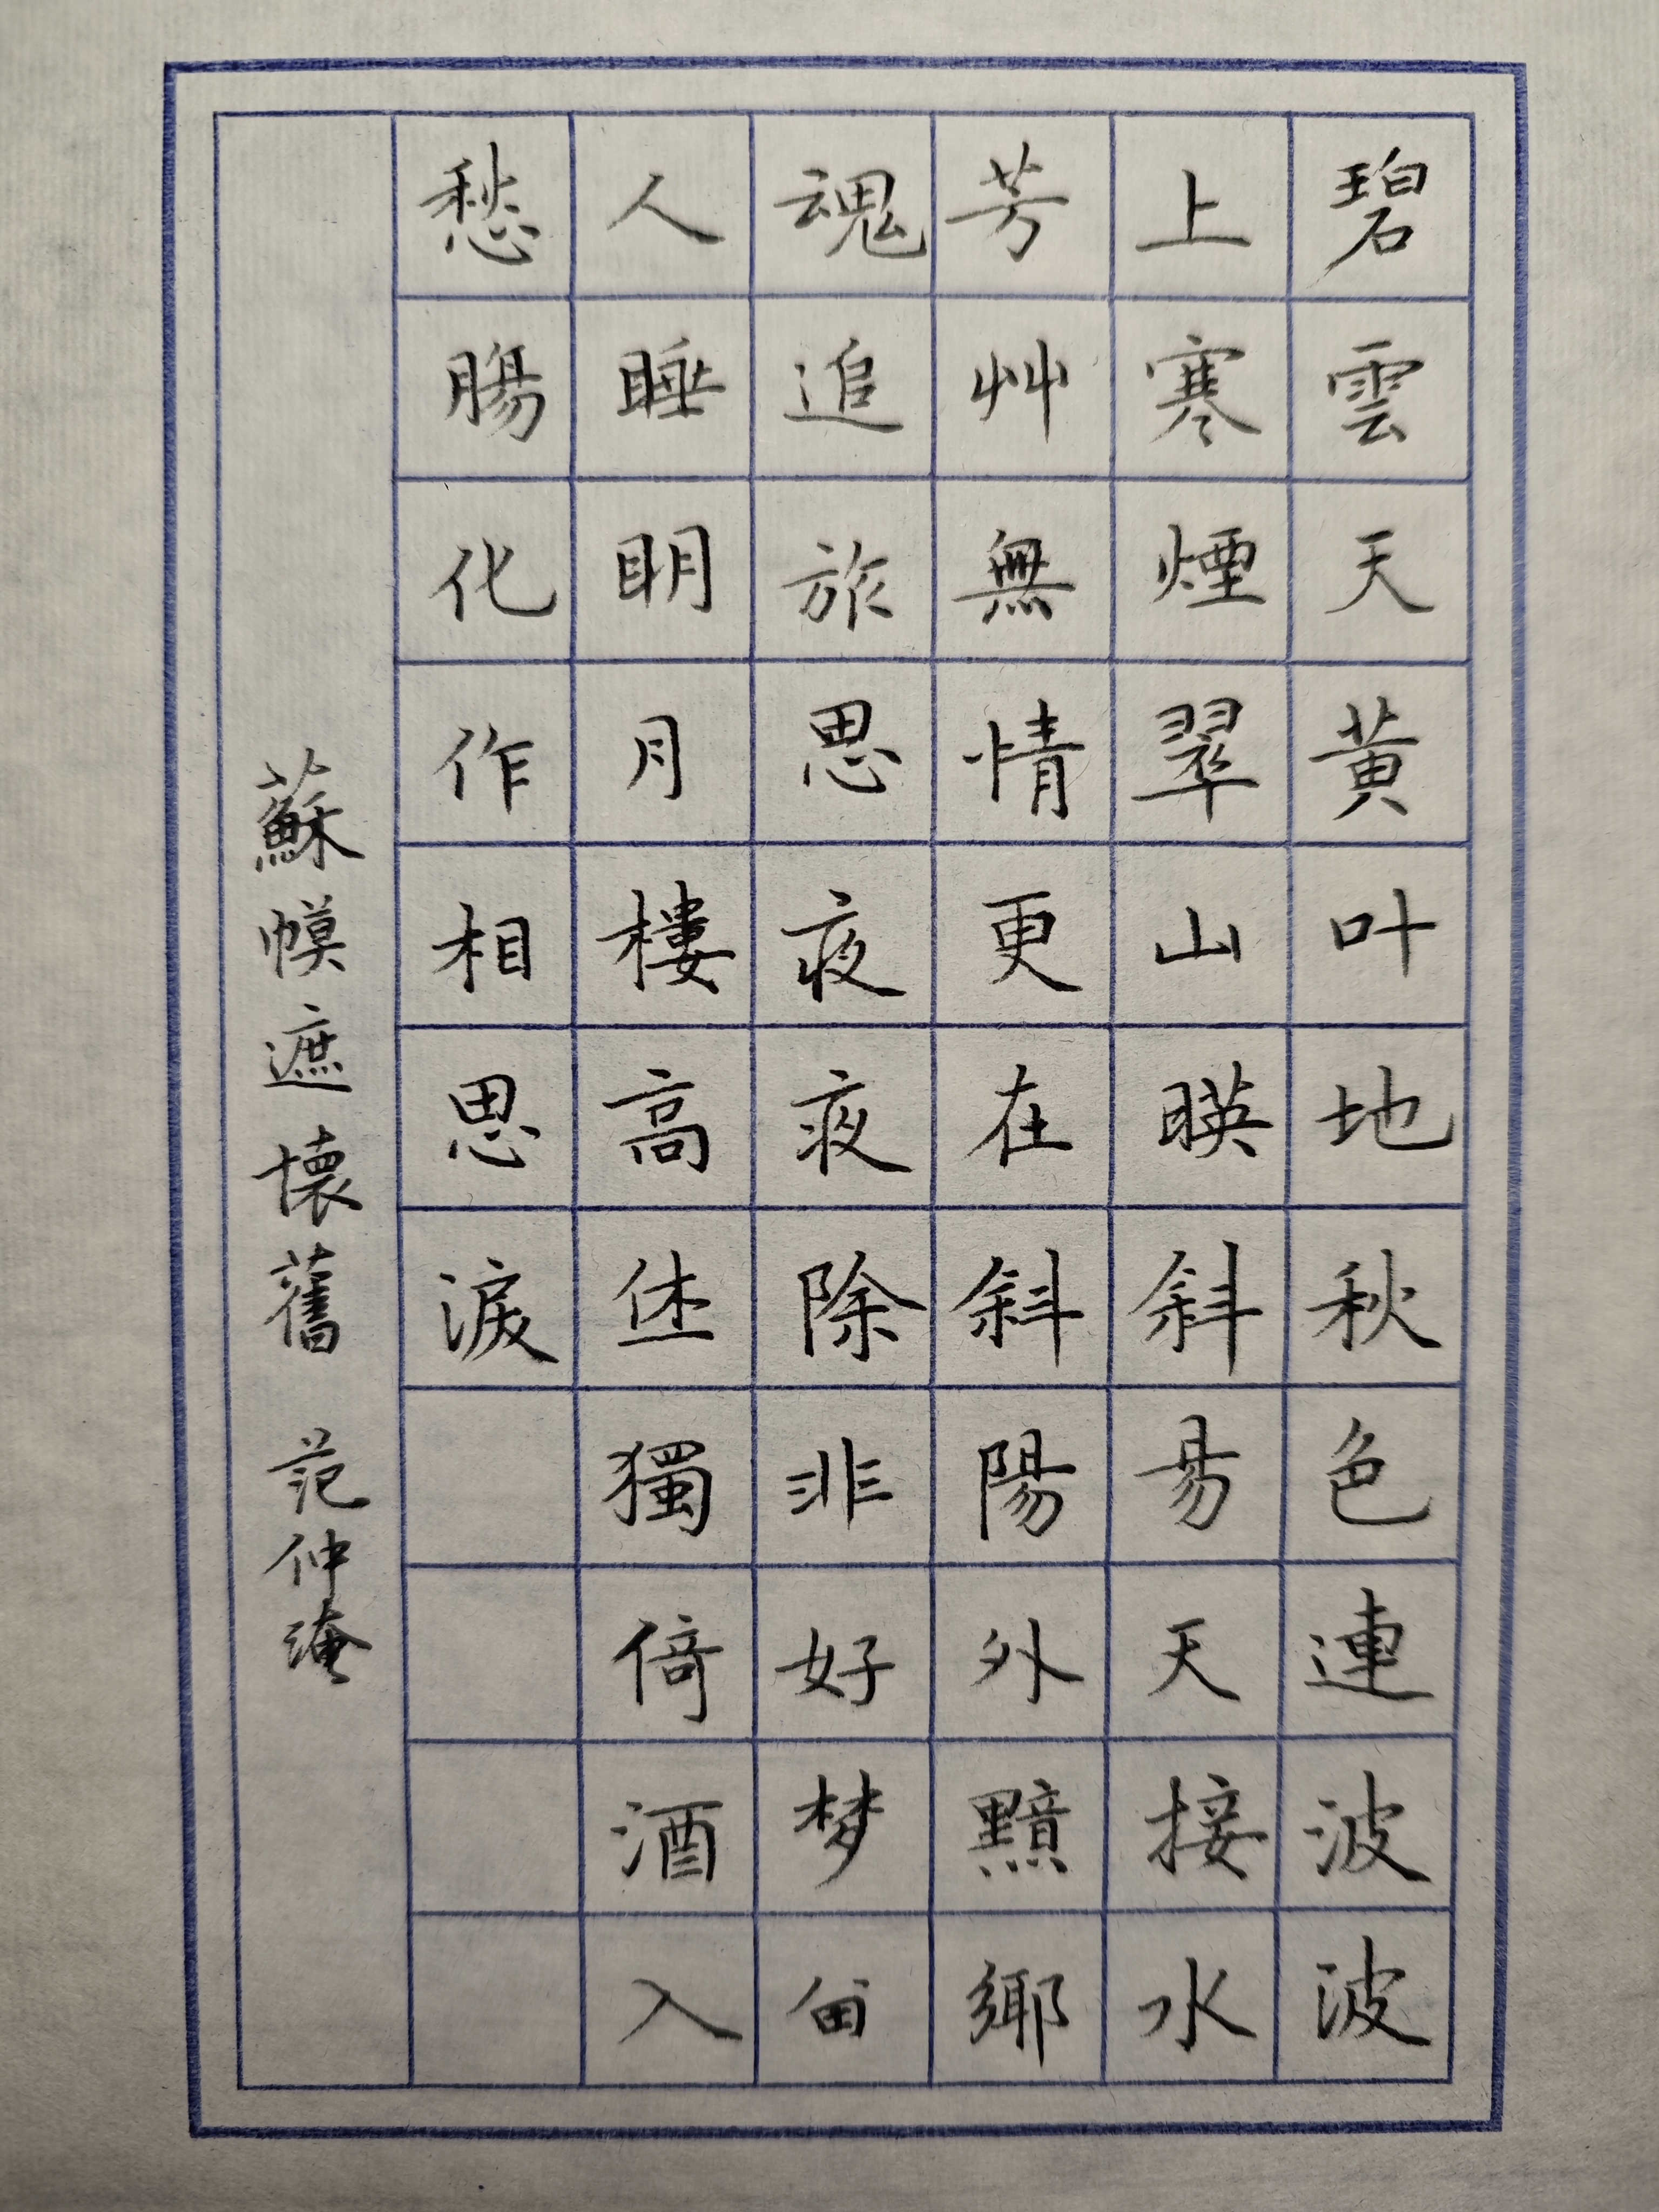 碧雲天黄叶地秋色連波波
上寒煙翠山暎斜昜天接水
芳艸無情更在斜陽外黯鄉
魂追旅思夜夜除非好梦留
人睡眀月樓高休獨倚酒入
愁腸化作相思淚
蘇幙遮懷舊 范仲淹